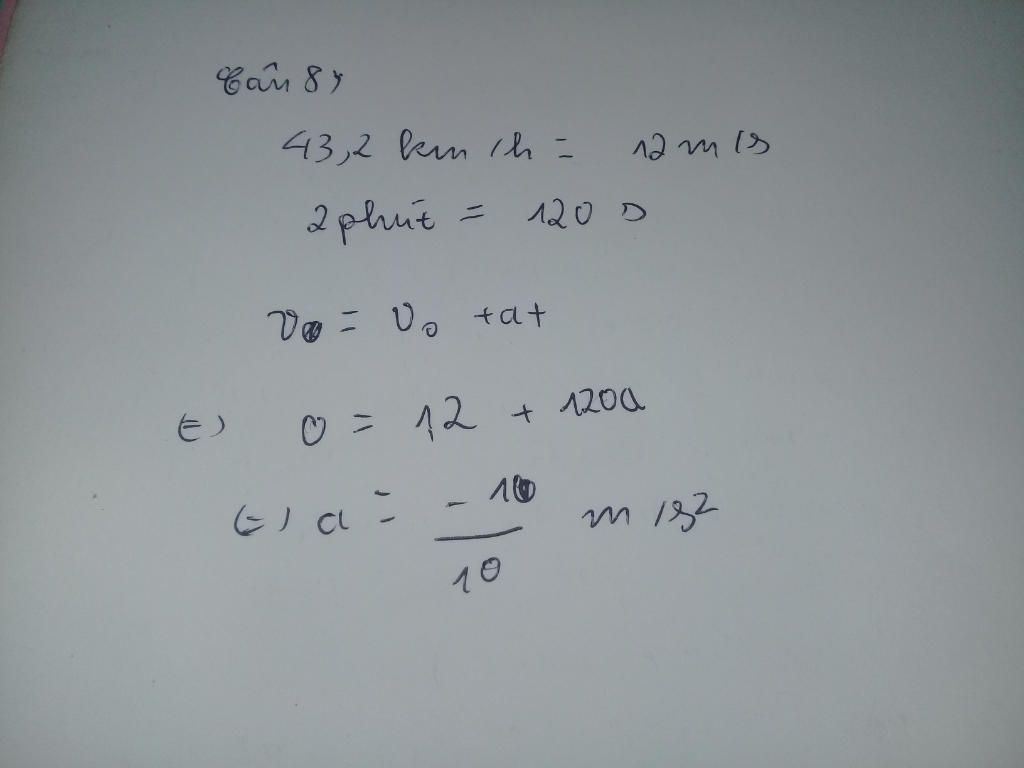 Câu 8,
43,2 km/h = 12 m/s
2 phút = 120 s
v = v₀ + at
(=) 0 = 12 + 120a
(=) a = -1/10 m/s²